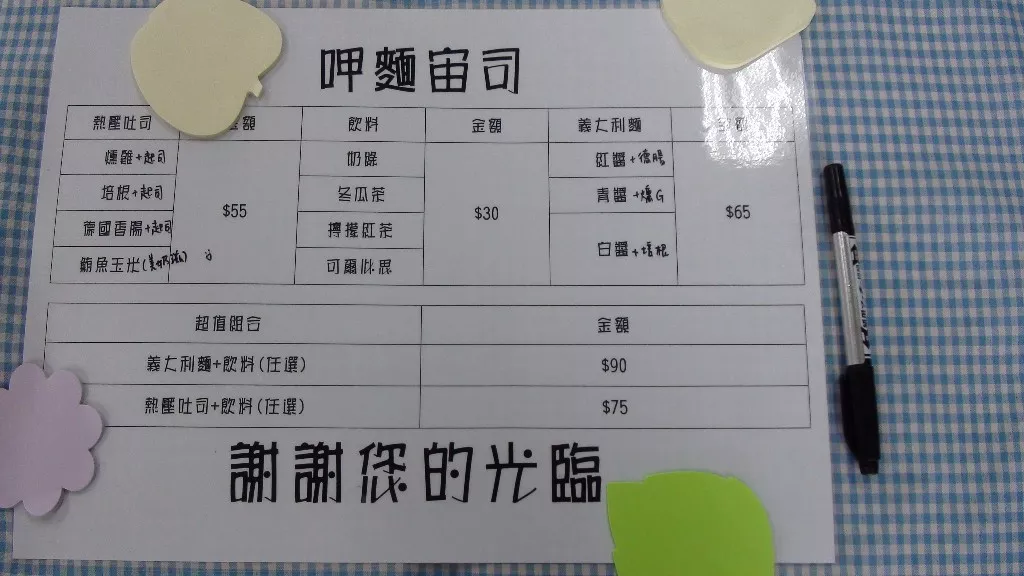 呷麵宙司
熱壓吐司 額 飲料 金額 義大利麵 金額
燻雞+起司 奶綠 紅醬+德腸
培根+起司 $55 冬瓜茶 $30 青醬+燻G $65
德國香腸+起司 檸檬紅茶 白醬+培根
鮪魚玉米(美奶滋) 可爾必思
超值組合 金額
義大利麵+飲料(任選) $90
熱壓吐司+飲料(任選) $75
謝謝您的光臨